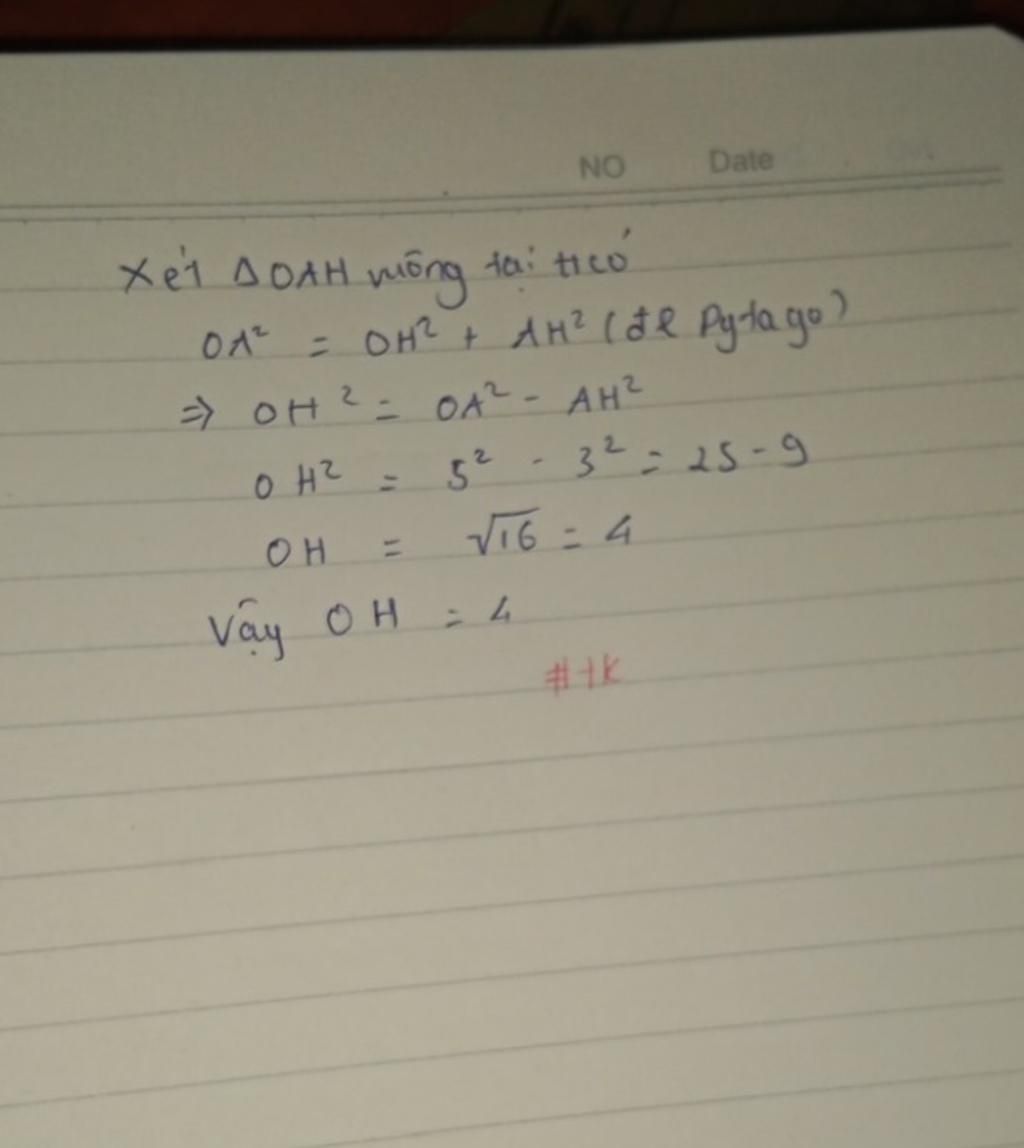 NO Date
Xét ΔOAH vuông tại H có
OA² = OH² + AH² (đl Pytago)
=> OH² = OA² - AH²
OH² = 5² - 3² = 25 - 9
OH = √16 = 4
Vậy OH = 4
#tk